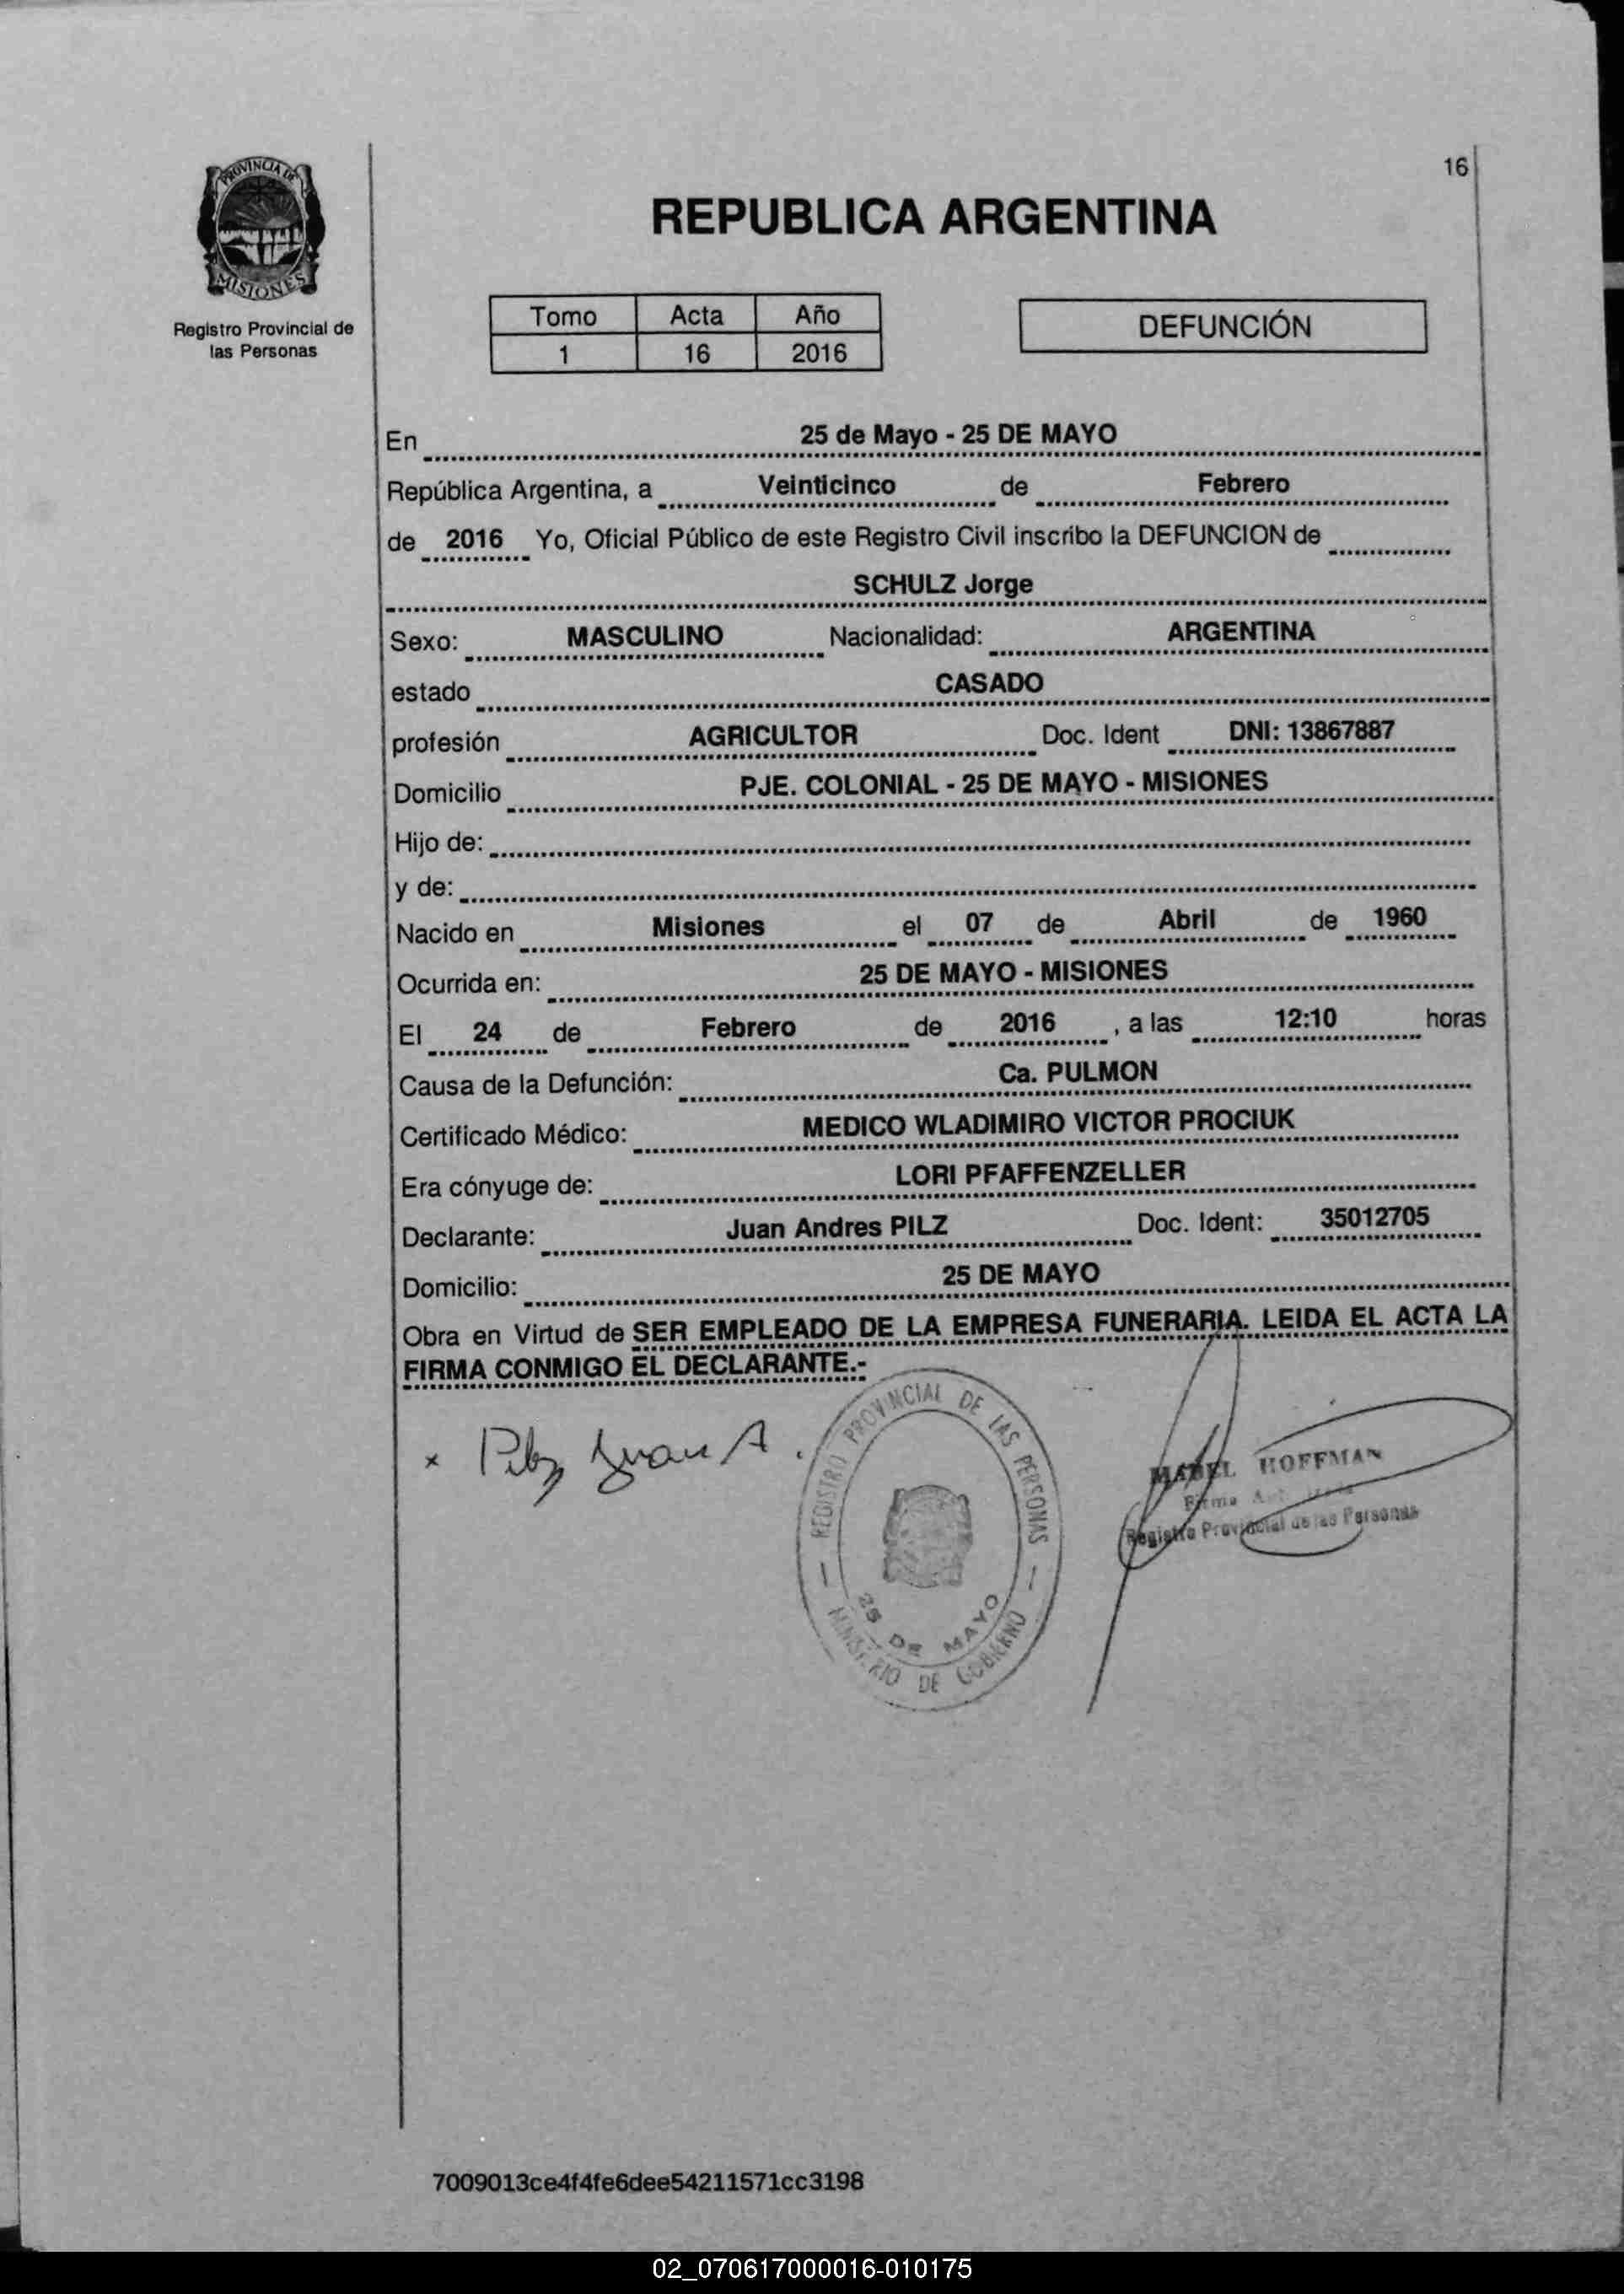 16
PROVINCIA DE
MISIONES
Registro Provincial de
las Personas
REPUBLICA ARGENTINA
Tomo Acta Año
1 16 2016
DEFUNCIÓN
En 25 de Mayo - 25 DE MAYO
República Argentina, a Veinticinco de Febrero
de 2016 Yo, Oficial Público de este Registro Civil inscribo la DEFUNCION de
SCHULZ Jorge
Sexo: MASCULINO Nacionalidad: ARGENTINA
estado CASADO
profesión AGRICULTOR Doc. Ident DNI: 13867887
Domicilio PJE. COLONIAL - 25 DE MAYO - MISIONES
Hijo de:
y de:
Nacido en Misiones el 07 de Abril de 1960
Ocurrida en: 25 DE MAYO - MISIONES
El 24 de Febrero de 2016 , a las 12:10 horas
Causa de la Defunción: Ca. PULMON
Certificado Médico: MEDICO WLADIMIRO VICTOR PROCIUK
Era cónyuge de: LORI PFAFFENZELLER
Declarante: Juan Andres PILZ Doc. Ident: 35012705
Domicilio: 25 DE MAYO
Obra en Virtud de SER EMPLEADO DE LA EMPRESA FUNERARIA. LEIDA EL ACTA LA
FIRMA CONMIGO EL DECLARANTE.-
x Pilz Juan A.
REGISTRO PROVINCIAL DE LAS PERSONAS
25 DE MAYO
MINISTERIO DE GOBIERNO
MABEL HOFFMAN
Firma
Registro Provincial de las Personas
7009013ce4f4fe6dee54211571cc3198
02_070617000016-010175